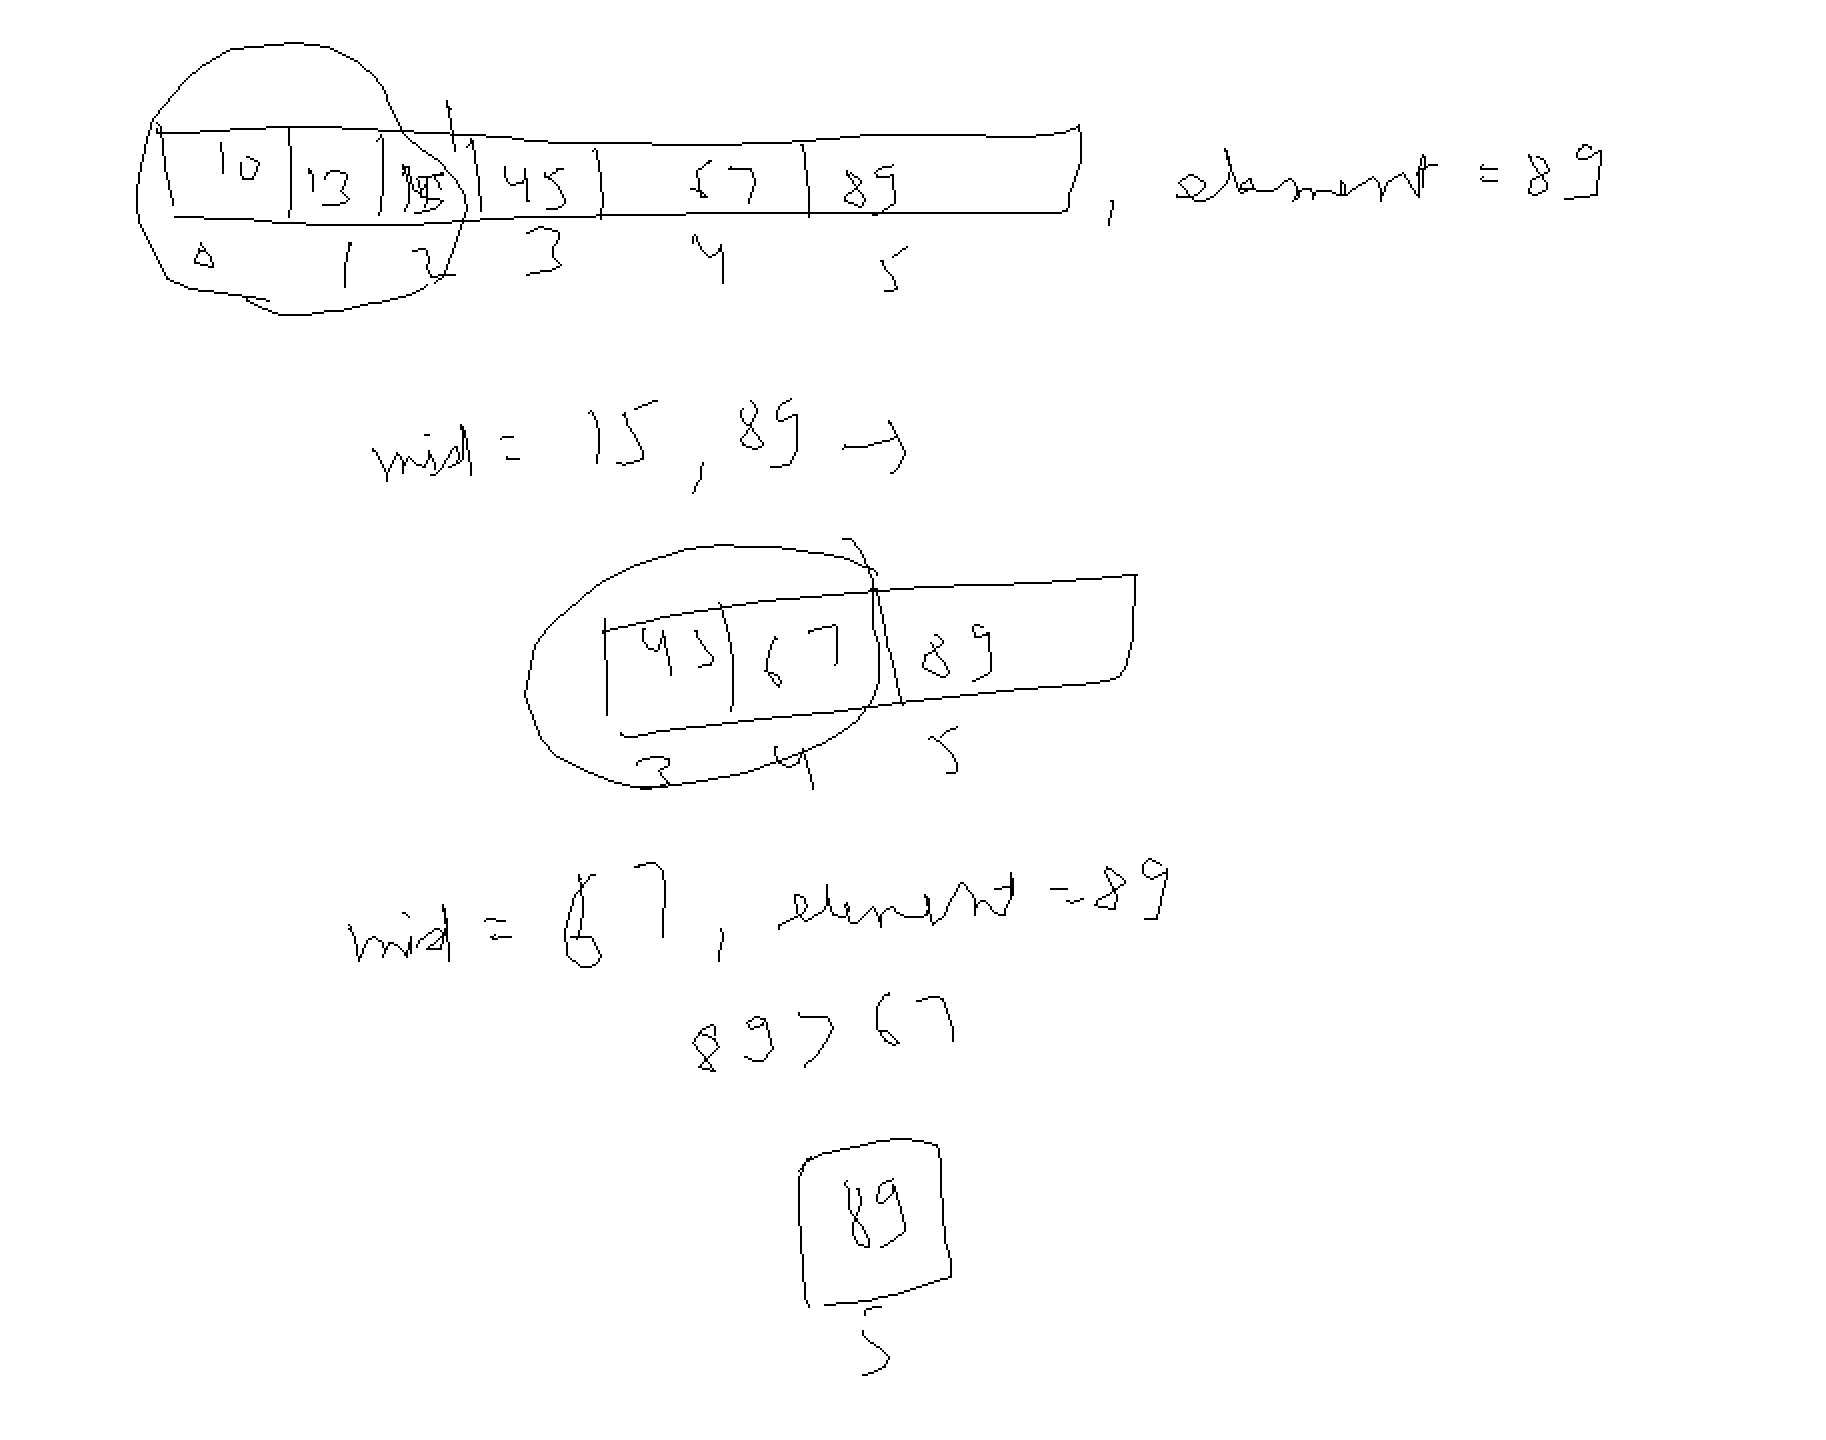 10 13 15 45 67 89 , element = 89
0 1 2 3 4 5
mid = 15 , 89 →
45 67 89
3 4 5
mid = 67 , element = 89
89 > 67
89
5